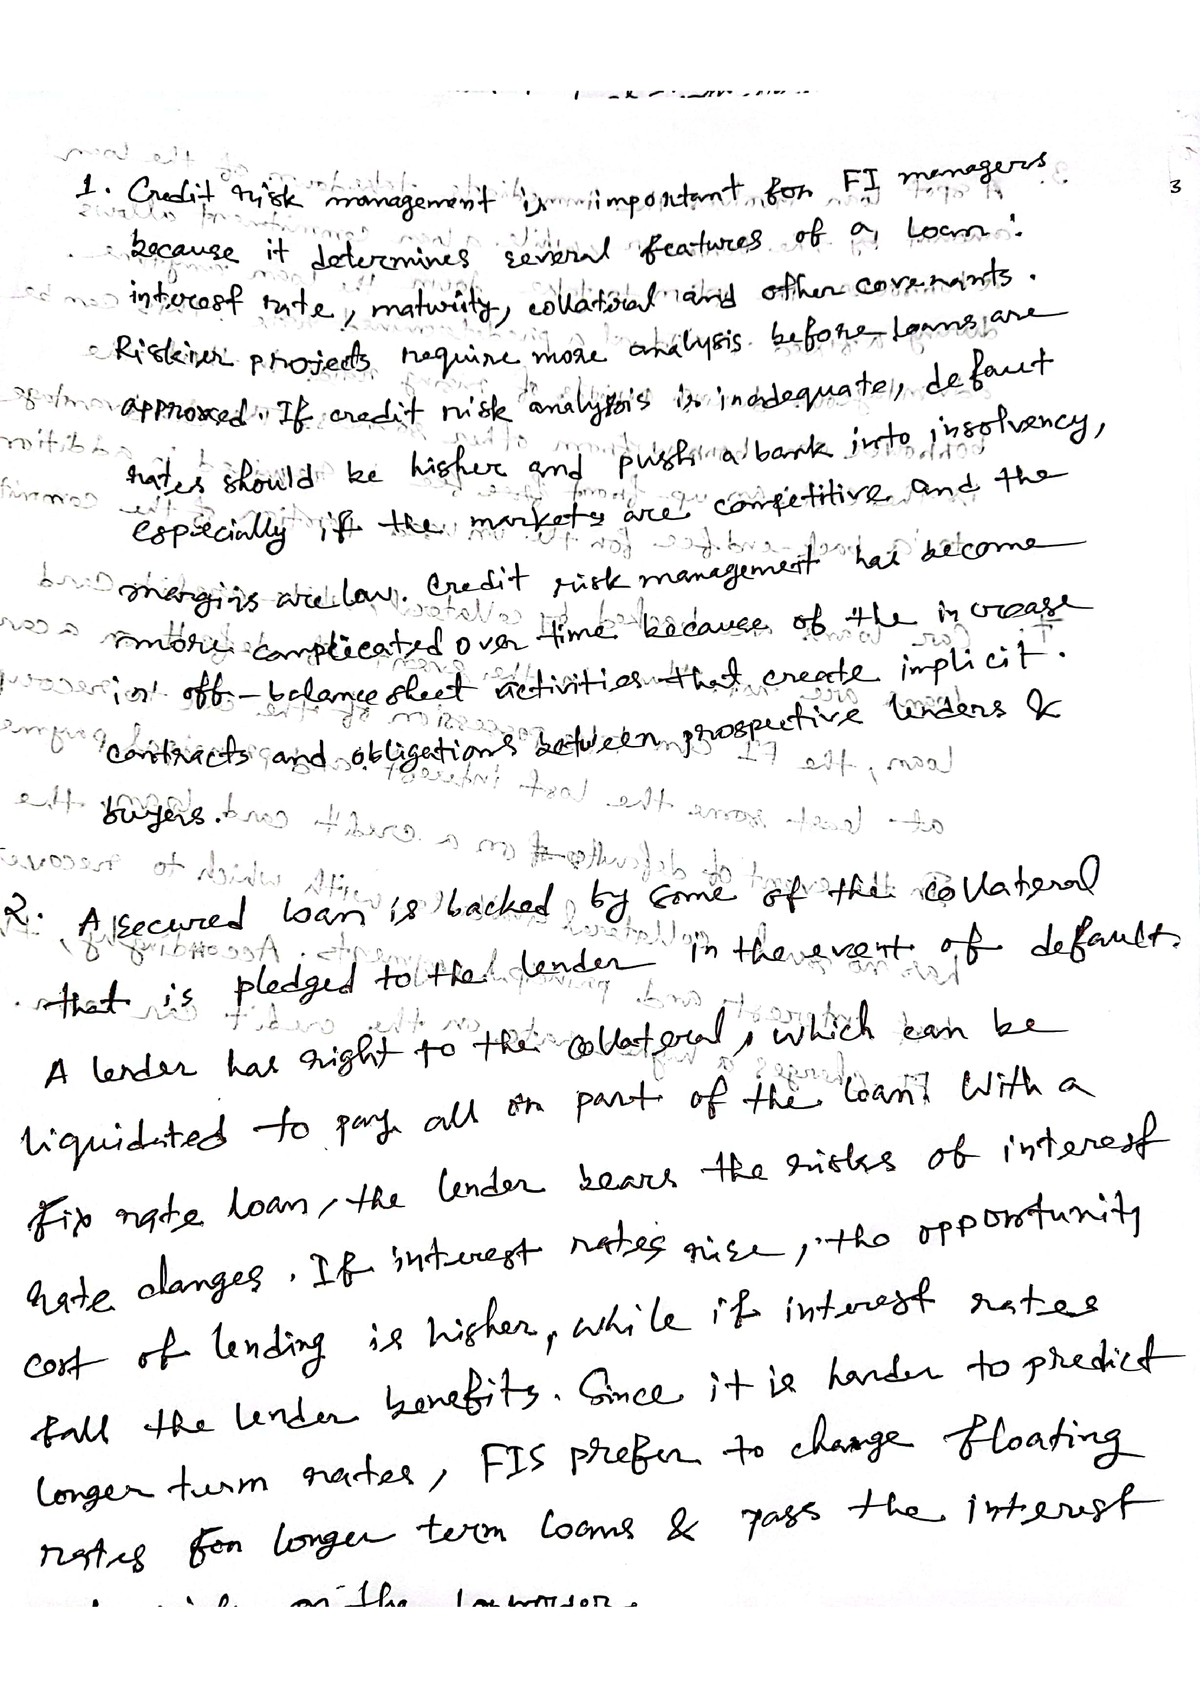 3
1. Credit risk management is important for FI menagers
because it determines several features of a loan :
interest rate, maturity, collateral and other covenants.
Riskier projects require more analysis before loans are
approved. If credit risk analysis is inadequate, defaut
rates should be higher and push a bank into insolvency,
especially if the markets are competitive and the
margins are low. Credit risk management has become
more complicated over time because of the increase
in off-balance sheet activities that create implicit
contracts and obligations between prospective lenders &
buyers.
2. A secured loan is backed by some of the collateral
that is pledged to the lender in the event of default.
A lender has right to the collateral, which can be
liquidated to pay all or part of the loan. With a
fix rate loan, the lender bears the risks of interest
rate changes. If interest rates rise, the opportunity
cost of lending is higher, while if interest rates
fall the lender benefits. Since it is harder to predict
longer term rates, FIS prefer to change floating
rates for longer term loans & pass the interest
on the borrower.